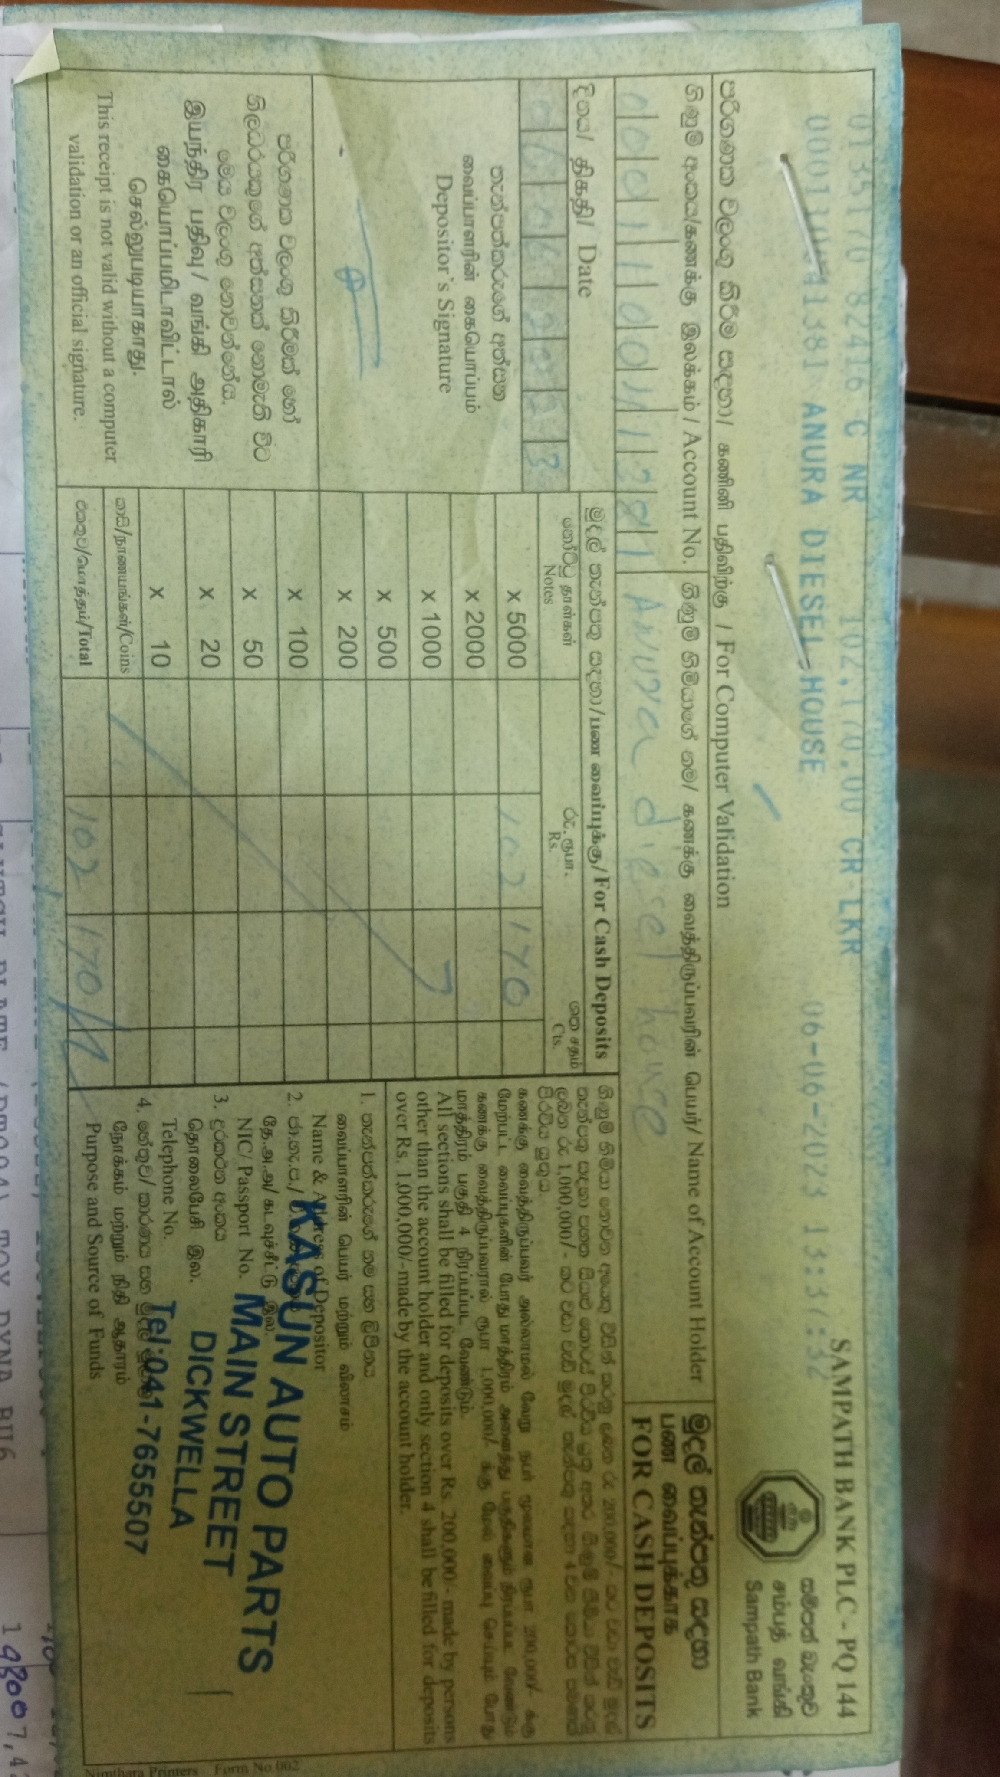 SAMPATH BANK PLC - PQ 144
0135170 82416 C NR 102,170.00 CR LKR 06-06-2023 13:37:32
000110041381 ANURA DIESEL HOUSE
සම්පත් බැංකුව
சம்பத் வங்கி
Sampath Bank
පරිගණක වලංගු කිරීම සඳහා/ கணினி பதிவிற்கு / For Computer Validation
ගිණුම් අංකය/கணக்கு இலக்கம் / Account No.
ගිණුම් හිමියාගේ නම/ கணக்கு வைத்திருப்பவரின் பெயர்/ Name of Account Holder
Anura diesel house
මුදල් තැන්පතු සඳහා
பண வைப்புக்காக
FOR CASH DEPOSITS
දිනය/ திகதி/ Date
තැන්පත්කරුගේ අත්සන
வைப்பாளரின் கையொப்பம்
Depositor's Signature
පරිගණක වලංගු කිරීමක් හෝ
නිලධරයකුගේ අත්සනක් නොමැති විට
මෙය වලංගු නොවන්නේය.
இயந்திர பதிவு/ வங்கி அதிகாரி
கையொப்பமிடாவிட்டால்
செல்லுபடியாகாது.
This receipt is not valid without a computer
validation or an official signature.
මුදල් තැන්පතු සඳහා/பண வைப்புக்கு/For Cash Deposits
නෝට්ටු தாள்கள் රු. ரூபா. ශත சதம்
Notes Rs. Cts.
x 5000 102 170
x 2000
x 1000
x 500
x 200
x 100
x 50
x 20
x 10
කාසි/நாணயங்கள்/Coins
එකතුව/மொத்தம்/Total 102 170/
கணக்கு வைத்திருப்பவர் அல்லாமல் வேறு நபர் மூலமான ரூபா 200,000/- க்கு
மேற்பட்ட வைப்புகளின் போது மாத்திரம் அனைத்து பகுதிகளும் நிரப்பப்பட வேண்டும்
கணக்கு வைத்திருப்பவரால் ரூபா 1,000,000/- க்கு மேல் வைப்பு செய்யும் போது
மாத்திரம் பகுதி 4 நிரப்பப்பட வேண்டும்.
All sections shall be filled for deposits over Rs. 200,000/- made by persons
other than the account holder and only section 4 shall be filled for deposits
over Rs. 1,000,000/- made by the account holder.
1. තැන්පත්කරුගේ නම සහ ලිපිනය
வைப்பாளரின் பெயர் மற்றும் விலாசம்
Name & Address of Depositor
2. ජා.හැ.ප./
தே.அ.அ/ கடவுச்சீட்டு இல.
NIC/ Passport No.
3. දුරකථන අංකය
தொலைபேசி இல.
Telephone No.
4. හේතුව/ කාරණය සහ
நோக்கம் மற்றும் நிதி ஆதாரம்
Purpose and Source of Funds
KASUN AUTO PARTS
MAIN STREET
DICKWELLA
Tel:041-7655507
Nimthara Printers Form No.002